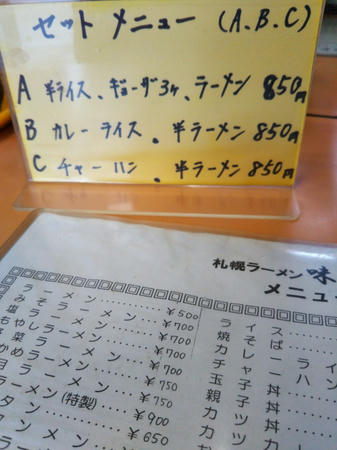 セットメニュー (A.B.C)
A 半ライス、ギョーザ3ヶ、ラーメン 850円
B カレーライス、半ラーメン 850円
C チャーハン、半ラーメン 850円
札幌ラーメン 味
メニュー
ラーメン……¥500
みそラーメン……¥700
塩ラーメン……¥700
もやしラーメン……¥700
野菜ラーメン……¥700
わかめラーメン……¥750
月見ラーメン……¥750
ラーメン(特製)……¥900
タン……¥650
ンメン
ラーメン
ライス
焼そば
カレーライ
チャーハン
玉子丼
親子丼
カツ丼
カツカ